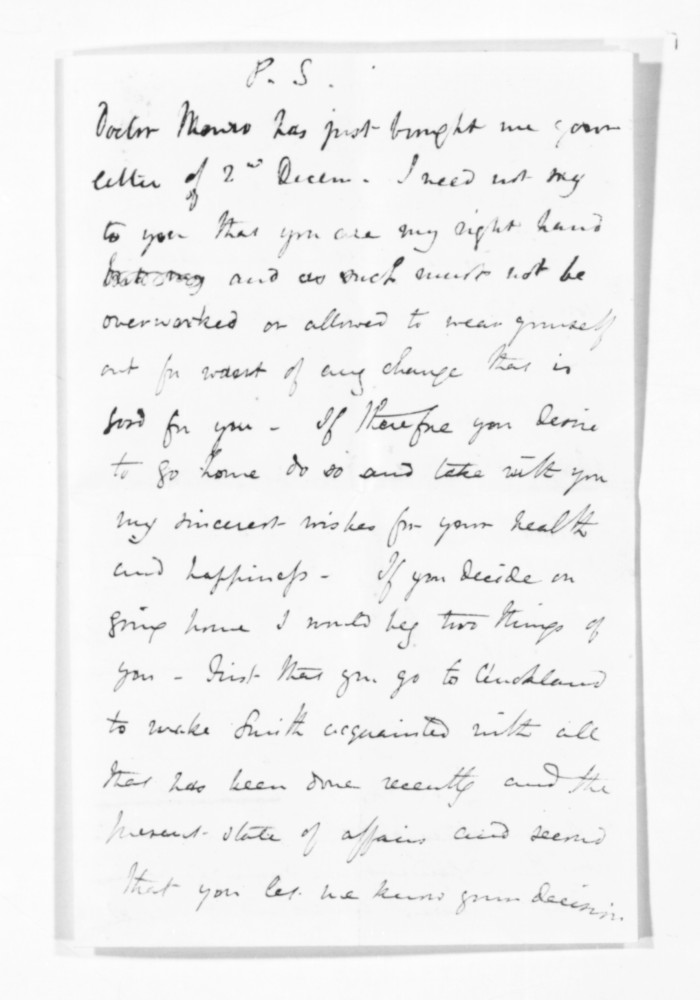 P. S.
Doctor Monro has just brought me your
letter of 2nd Decem - I need not say
to you that you are my right hand
and as such must not be
overworked or allowed to wear yourself
out for want of any change that is
good for you - If therefore you desire
to go home do so and take with you
my sincerest wishes for your health
and happiness - If you decide on
going home I would beg two things of
you - First that you go to Auckland
to make Smith acquainted with all
that has been done recently and the
present state of affairs and second
that you let me know your decision